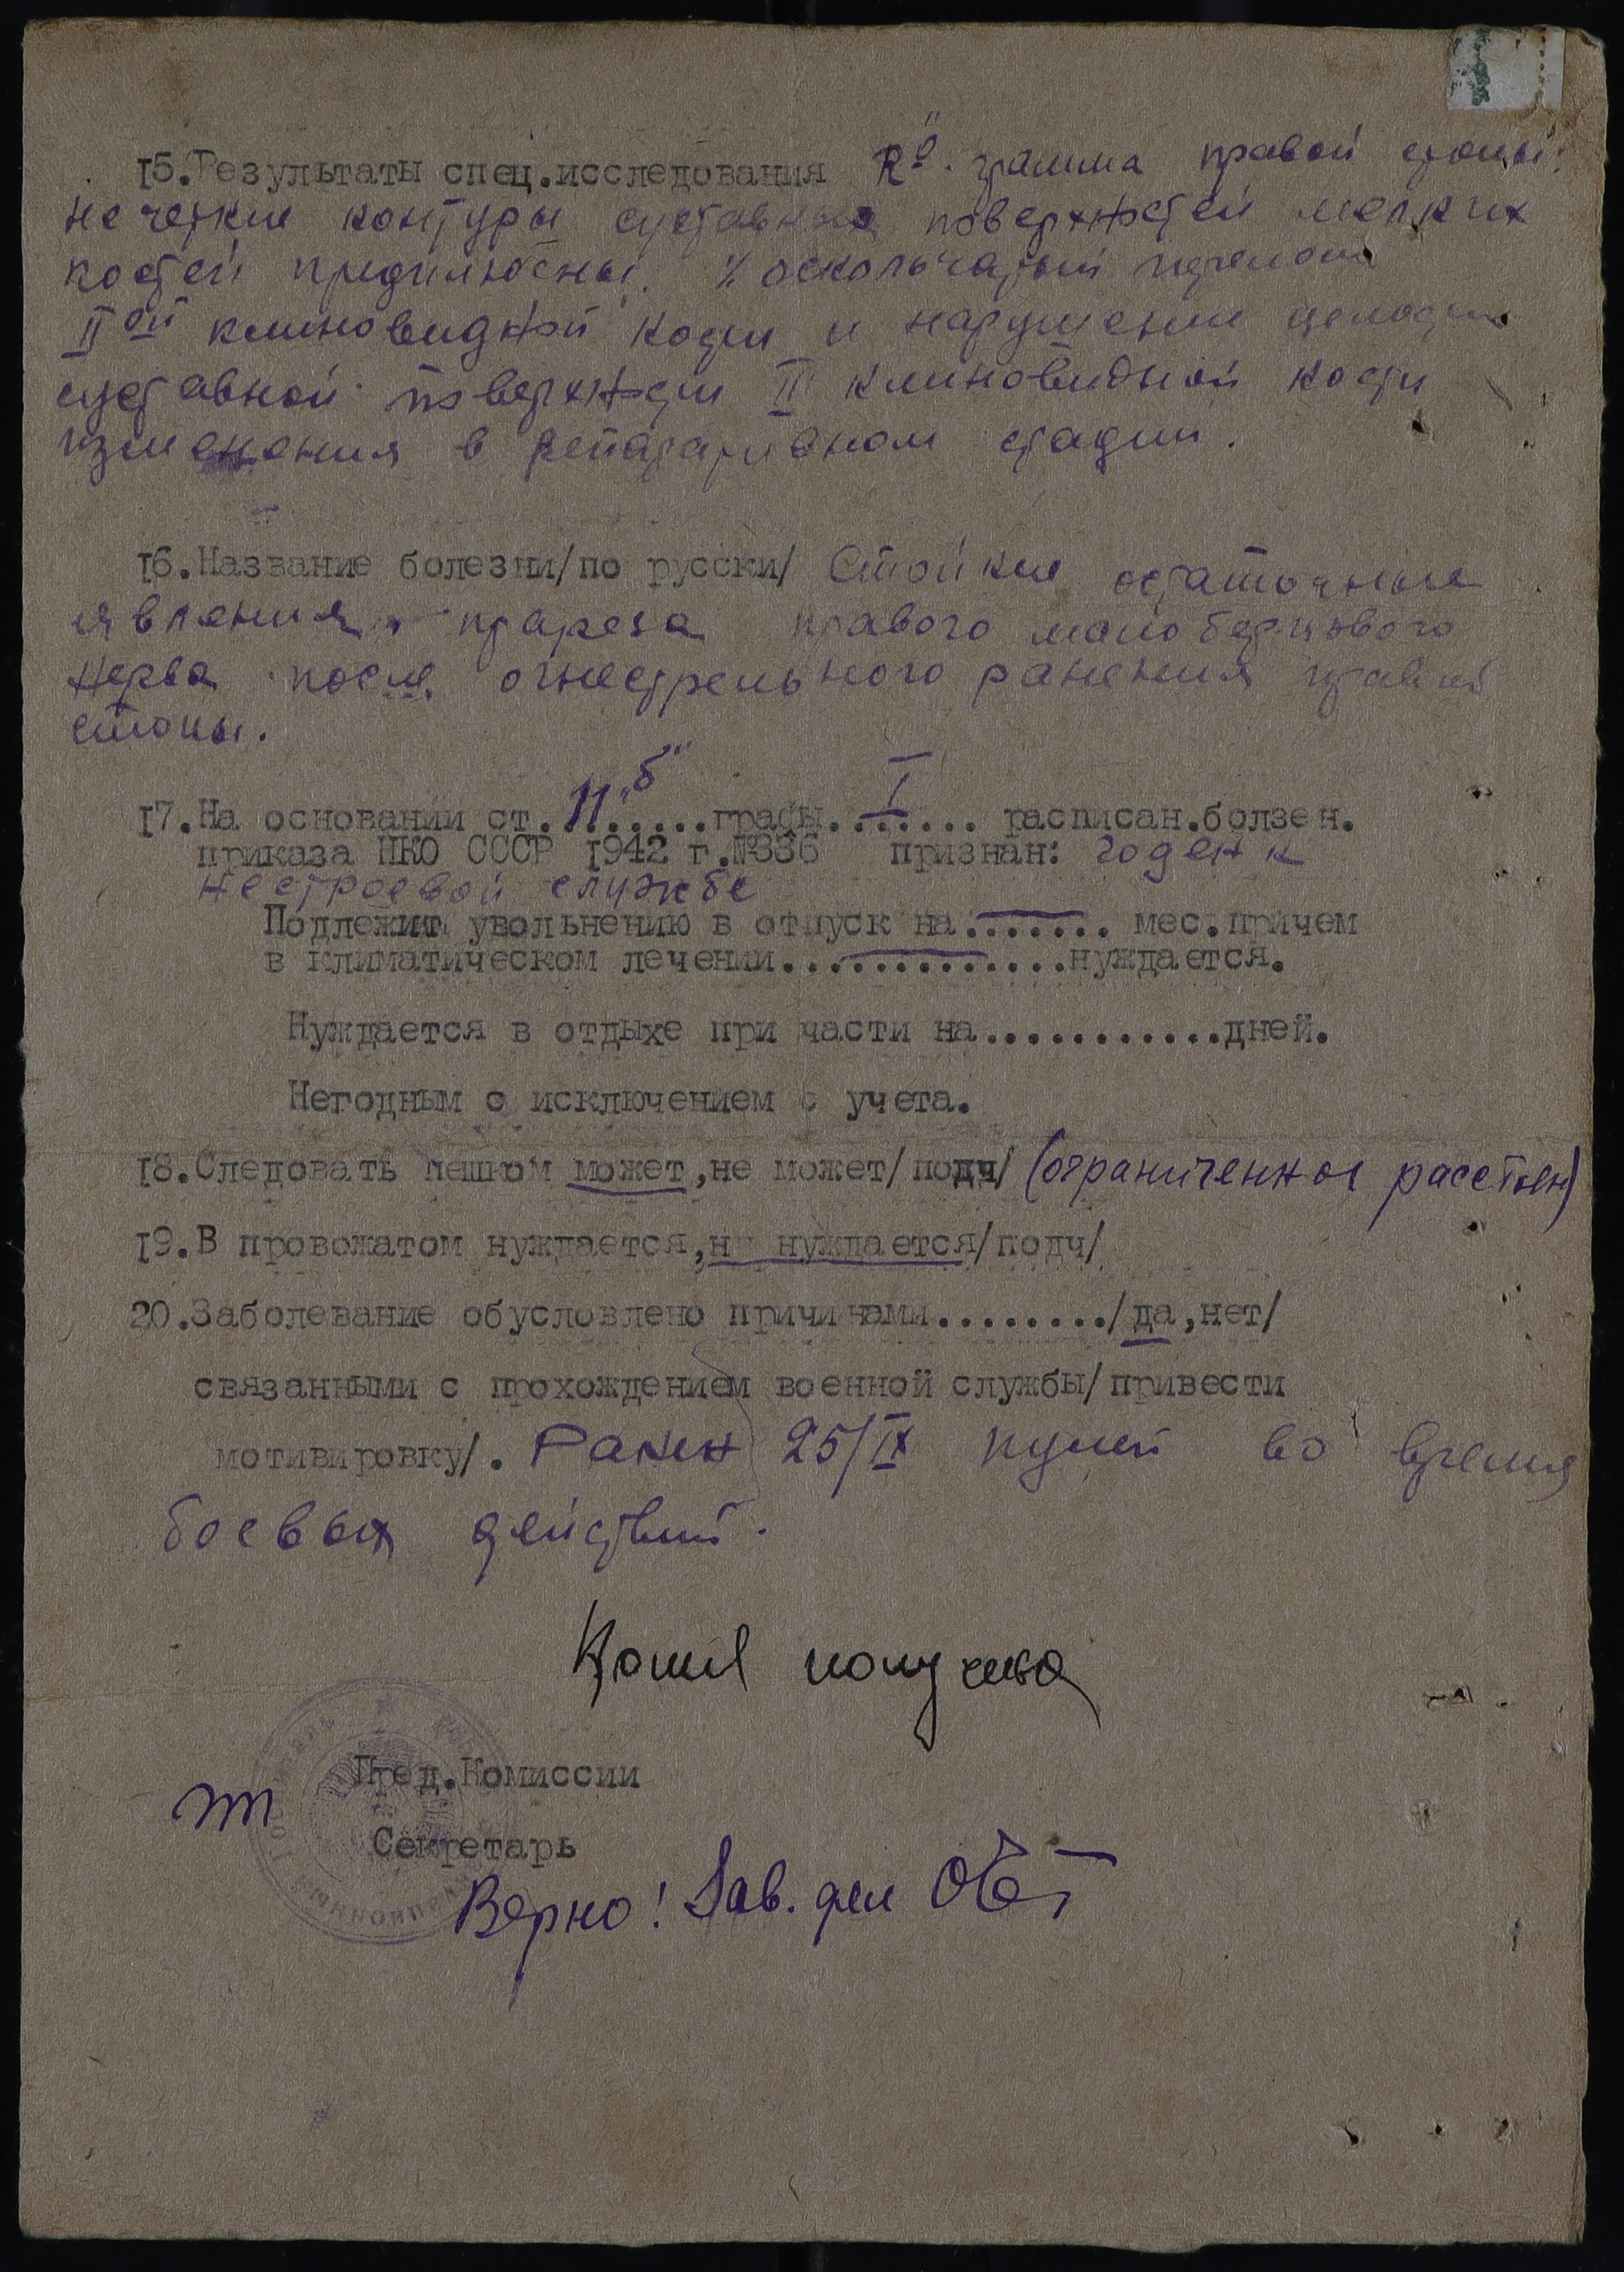 15.Результаты спец.исследования Rо. грамма правой стопы:
нечеткие контуры суставных поверхностей мелких
костей предплюсны. оскольчатый перелом
IIой клиновидной кости и нарушение целости
суставной поверхности II клиновидной кости
изменения в репаративном стадии.
16.Название болезни/по русски/ Стойкие остаточные
явления пареза правого малоберцового
нерва после огнестрельного ранения правой
стопы.
17.На основании ст. 11 "б" графы I расписан.болзен.
приказа НКО СССР 1942 г.№336 признан: годен к
нестроевой службе
Подлежит увольнению в отпуск на....... мес.причем
в климатическом лечении.............нуждается.
Нуждается в отдыхе при части на...........дней.
Негодным с исключением с учета.
18.Следовать пешком может,не может/подч/ (ограниченное расстоян)
19.В провожатом нуждается,н нуждается/подч/
20.Заболевание обусловлено причинами......../да,нет/
связанными с прохождением военной службы/привести
мотивировку/. Ранен 25/IX пулей во время
боевых действий.
Копия получена
Пред.Комиссии
Секретарь
Верно! Зав. дел